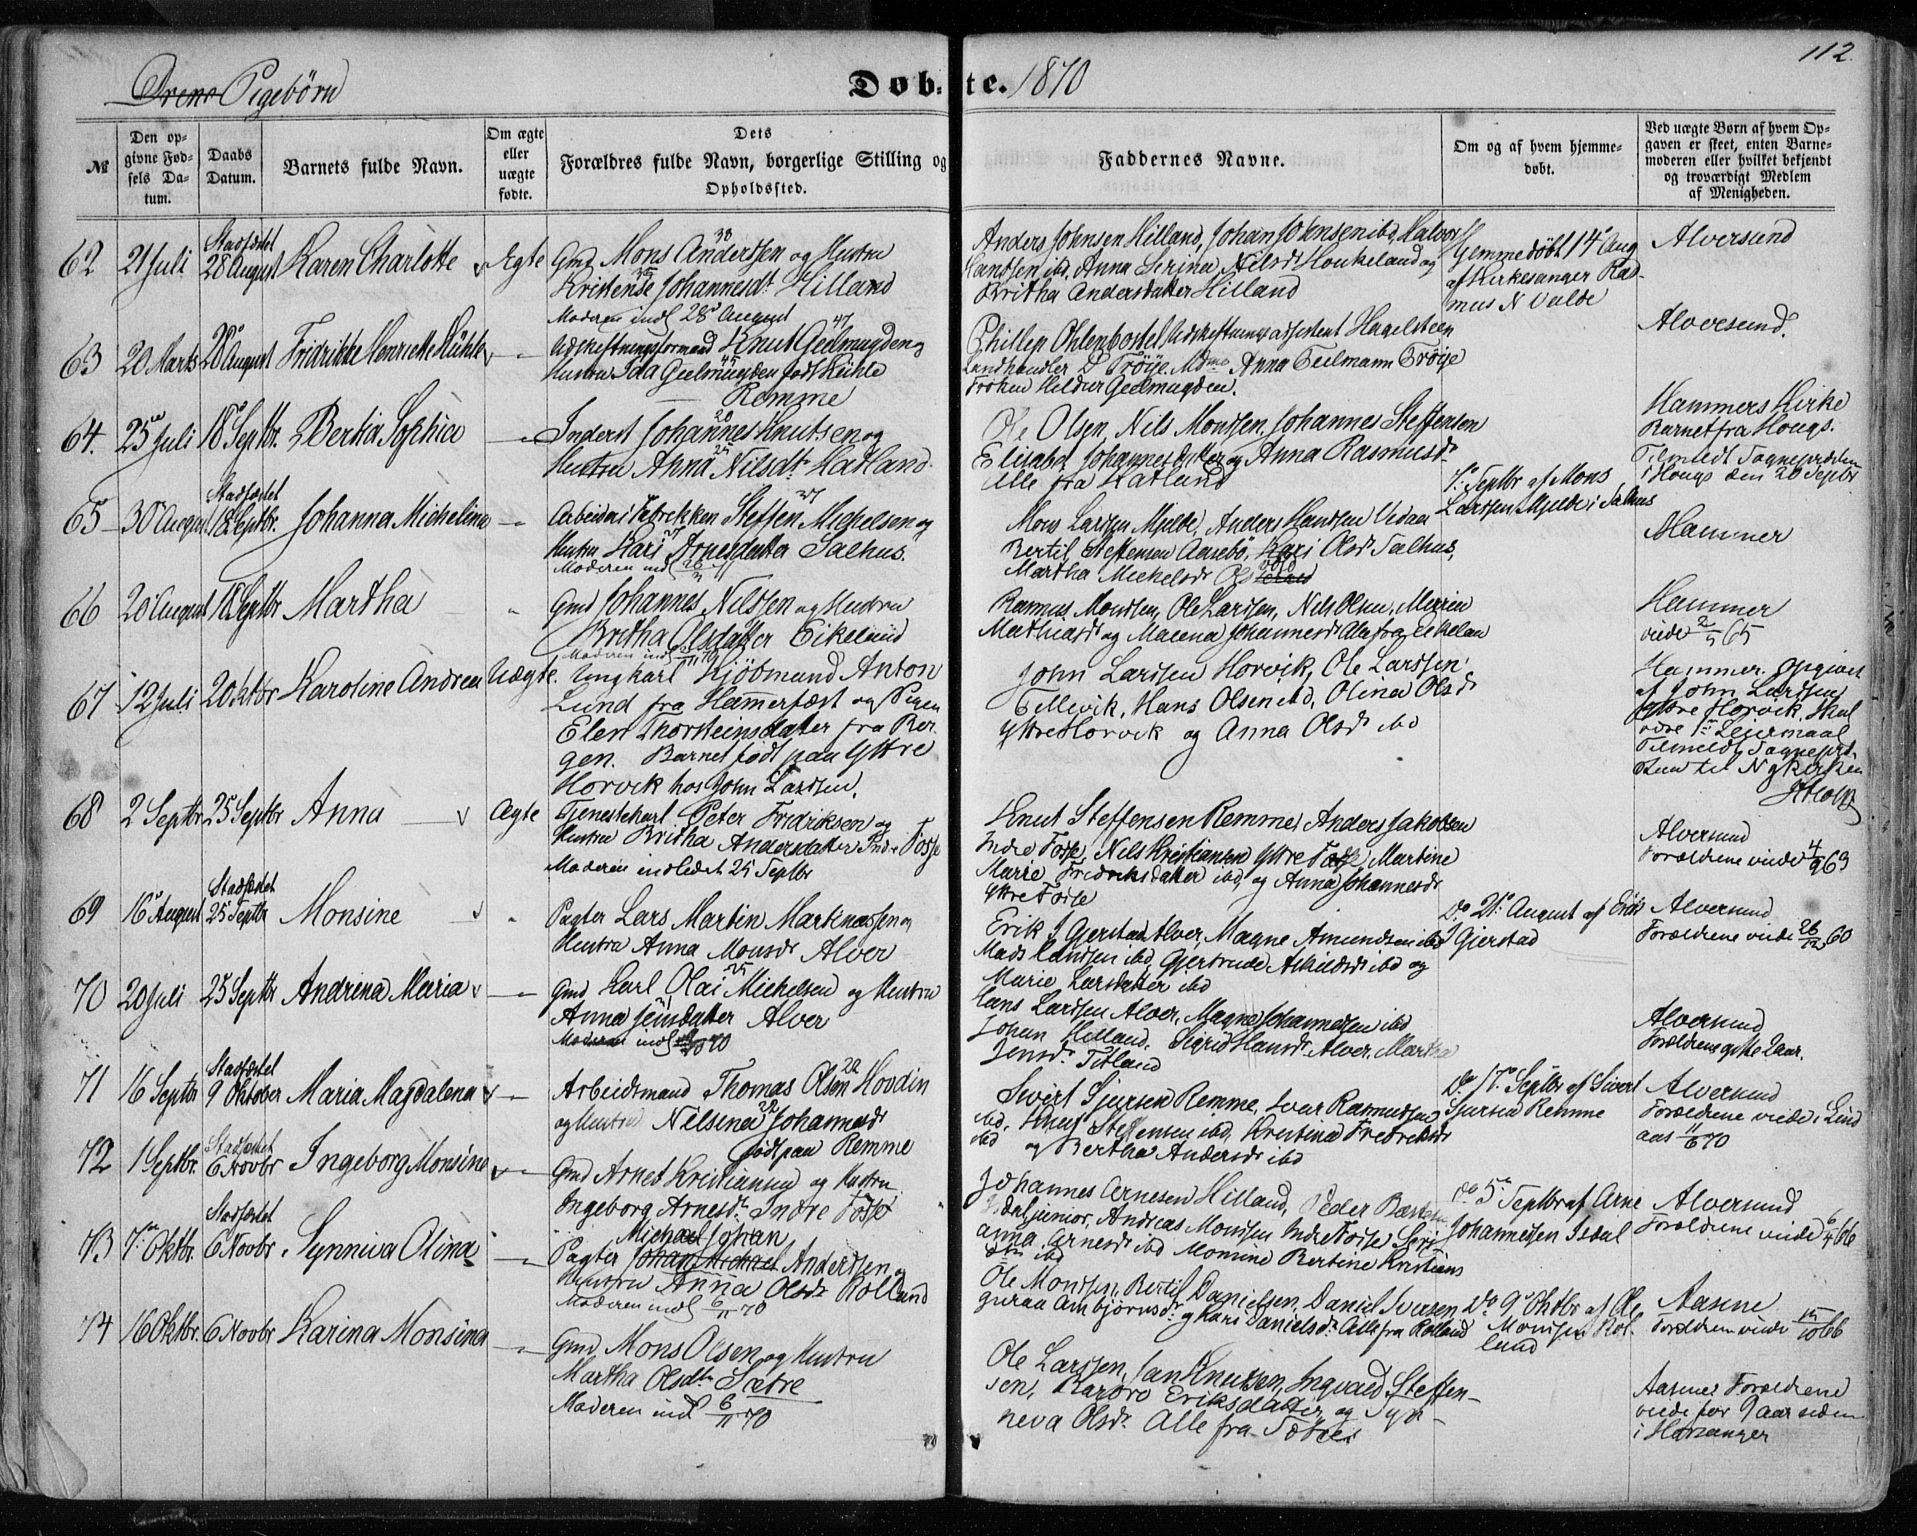 112.
Drene Pigebørn
Døbte. 1870
№
Den opgivne Fødsels Datum.
Daabs Datum.
Barnets fulde Navn.
Om ægte eller uægte fødte.
Dets Forældres fulde Navn, borgerlige Stilling og Opholdssted.
Faddernes Navne.
Om og af hvem hjemmedøbt.
Ved uægte Børn af hvem Opgaven er skeet, enten Barnemoderen eller hvilket bekjendt og troværdigt Medlem af Menigheden.
62 21 Juli Stadfæstet 28 August Karen Charlotte Egte
Gmd Mons Anderssen 38 og Hustru
Kristense Johannesdr Hilland
Moderen indl 28 August
Anders Johnsen Hilland, Johan Johnsen ibd, Halvor
Handsen ibd, Anna Serina Nilsdr Houkeland og
Britha Andersdatter Hilland
Hjemmedøbt 14 Aug
af Kirkesanger Ras
mus N Valde
Alversund
63 20 Marts 28 August Fridrikke Henriette Kühle
Udskiftningsformand Knut Geelmuyden 47 og
Hustru Ida Geelmuyden 45 født Kühle
Remme
Phillip Ohlenbostel Udskiftningsassistent Hagelsteen
Landhandler Trøije, Mdme Anna Teilmann Trøije
Frøken Hildur Geelmuyden.
Alversund.
64. 25 Juli 18 Septbr. Bertia Sophia
Inderst Johannes Knutsen og
Hustru Anna Nilsdtr Hatland.
Ole Olsen, Nils Monssen, Johannes Steffensen
Elisabet Johannesdatter og Anna Rasmusdr
Alle fra Hatland
Hammers Kirke
Barnet fra Hougs.
Tilmeldt Sognepræsten
i Hougs den 20 Septbr
65 30 August Stadfæstet 18 Septbr. Johanna Michelina
Arbeider i Fabrikken Steffen Michelsen 27 og
Hustru Kari Arnesdatter Salhus.
Moderen indl
Mons Larssen Mjelde, Anders Handsen Vedaa
Bertil Steffensen Aasebö, Kari Olsdr Salhus,
Martha Michelsdr
7 Septbr af Mons
Larssen Mjelde i Salhus
Hammer
66 20 August 18 Septbr Martha
Gmd Johannes Nilssen og Hustru
Britha Olsdatter Eikeland
Rasmus Monssen, Ole Larssen, Nils Olsen, Maren
Mathiasdr og Malena Johannesdr Alle fra Eikelan
Hammer
viede 2/5 65
67 12 Juli 2 Oktbr Karoline Andrea Uægte.
Ungkarl Kjöbmand Anton
Lund fra Hammerfæst og Pigen
Elen Thorsteinsdatter fra Ber
gen. Barnet født paa Yttre
Horvik hos John Larssen.
John Larssen Horvik, Ole Larssen
Tellevik, Hans Olsen ibd, Olina Olsdr
Yttre Horvik og Anna Olsdr ibd
Hammer. Opgivet
af John Larssen
Yttre Horvik. Skal
være 1ste Leiermaal
Tilmeldt Sognepræ
sten til Nykirken
68 2 Septbr 25 Septbr Anna Ægte
Tjenestekarl Peter Fredriksen og
Hustru Britha Andersdatter Indre Fosse
Moderen indledet 25 Septbr
Knut Steffensen Remme, Anders Jakobsen
Indre Fosse, Nils Kristiansen Yttre Fosse, Martine
Marie Fredriksdatter ibd, og Anna Johannesdr
Yttre Fosse
Alversund
Forældrene viede 4/9 63
69 16 August Stadfæstet 25 Septbr Monsine
Pagter Lars Martin Marknæssen og
Hustru Anna Monsdr Alver
Erik J Gjerstad Alver, Magne Amundsen ibd
Mads Knudsen ibd, Gjertrude Askildsdr ibd og
Marie Larsdatter ibd
Do 21 August af Erik
J Gjerstad
Alversund
Forældrene viede 26/12 60
70 20 Juli 25 Septbr Andrina Maria
Gmd Karl Olai Michelsen 25 og Hustru
Anna Jensdatter Alver
Moderen indl
Hans Larssen Alver, Magne Johannessen ibd
Johan Hilland, Sigrid Hansdr Alver, Martha
Jensdr Titland
Alversund
Forældrene gifte 2 aar.
71 16 Septbr Stadfæstet 9 Oktober Maria Magdalena
Arbeidsmand Thomas Olsen 22 Hovdin
og Hustru Nilsina Johannesdr
født paa Remme
Sivert Sjursen Remme, Ivar Rasmussen
ibd, Knut Steffensen ibd, Kristina Fredriksdr
ibd og Bertha Andersdr ibd
Do 17 Septbr af Sivert
Sjursen Remme
Alversund
Forældrene viede i Lind
aas 11/6 70
72 1 Septbr. Stadfæstet 6 Novbr Ingeborg Monsine
Gmd Arnes Kristiansen og Hustru
Ingeborg Arnesdr Indre Fosse
Johannes Arnesen Hilland, Peder
Isdal junior, Andreas Monssen Indre Fosse, Seri
anna Arnesdr ibd Monsine Bertine Kristians
dtr ibd
Do 5 Septbr af Arne
Johannessen Isdal
Alversund
Forældrene viede 6/4 66
73 7 Oktbr. Stadfæstet 6 Novbr Synniva Olina
Michael Johan
Pagter Johan Michael Anderssen og
Hustru Anna Olsdr Rolland
Moderen indl 6/11 70
Ole Monssen, Bertil Danielsen, Daniel Iversen,
Guraa Ambjørnsdr og Kari Danielsdr Alle fra Rolland
Do 9 Oktbr af Ole
Monssen Rol-
land
Aasene
Forældrene viede 10 66
74 16 Oktbr. 6 Novbr Karina Monsina
Gmd Mons Olsen og Hustru
Martha Olsdtr Sætre
Moderen indl 6/11 70
Ole Larssen, Jan Knutsen, Ingvald Steffen-
sen, Barbro Eriksdatter og Syn-
neva Olsdr Alle fra Sætre
Aasene Forældrene
viede for 9 aar siden
i Harranger